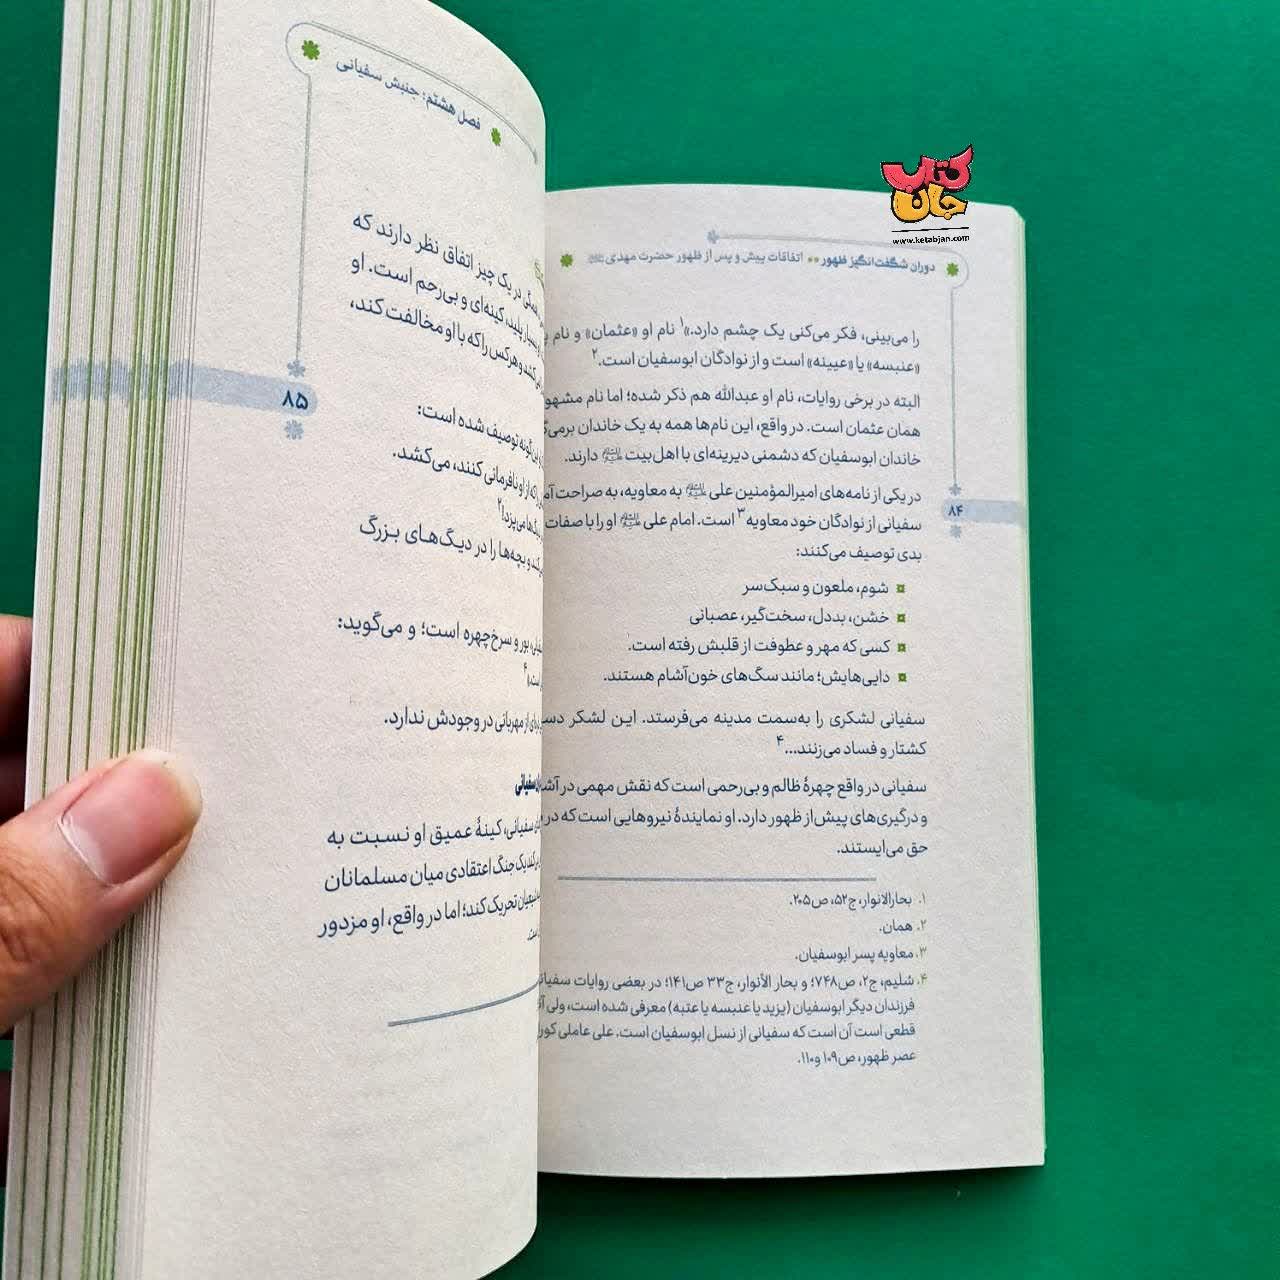 کتاب
جان
www.ketabjan.com
دوران شگفت‌انگیز ظهور ** اتفاقات پیش و پس از ظهور حضرت مهدی
را می‌بینی، فکر می‌کنی یک چشم دارد.»۱ نام او «عثمان» و نام
«عنبسه» یا «عیینه» است و از نوادگان ابوسفیان است.۲
البته در برخی روایات، نام او عبدالله هم ذکر شده؛ اما نام
همان عثمان است. در واقع، این نام‌ها همه به یک خاندان
خاندان ابوسفیان که دشمنی دیرینه‌ای با اهل‌بیت علیهم‌السلام دارند.
در یکی از نامه‌های امیرالمؤمنین علی علیه‌السلام به معاویه، به صراحت
سفیانی از نوادگان خود معاویه۳ است. امام علی علیه‌السلام او را با صفات
بدی توصیف می‌کنند:
شوم، ملعون و سبک‌سر
خشن، بددل، سخت‌گیر، عصبانی
کسی که مهر و عطوفت از قلبش رفته است.
دایی‌هایش؛ مانند سگ‌های خون‌آشام هستند.
سفیانی لشکری را به‌سمت مدینه می‌فرستد. این لشکر
کشتار و فساد می‌زنند...۴
سفیانی در واقع چهرهٔ ظالم و بی‌رحمی است که نقش مهمی در
و درگیری‌های پیش از ظهور دارد. او نمایندهٔ نیروهایی است که در
حق می‌ایستند.
۱. بحارالانوار، ج۵۲، ص۲۰۵.
۲. همان.
۳. معاویه پسر ابوسفیان.
۴. سُلیم، ج۲، ص۷۴۸؛ و بحار الأنوار، ج۳۳ ص۱۴۱؛ در بعضی روایات
فرزندان دیگر ابوسفیان (یزید یا عنبسه یا عتبه) معرفی شده است، ولی
قطعی است آن است که سفیانی از نسل ابوسفیان است. علی عاملی
عصر ظهور، ص۱۰۹ و۱۱۰.
۸۴
فصل هشتم: جنبش سفیانی
همگی در یک چیز اتفاق نظر دارند که
بسیار پلید، کینه‌ای و بی‌رحم است. او
می‌کشد و هرکس را که با او مخالفت کند،
این‌گونه توصیف شده است:
را که از او نافرمانی کنند، می‌کشد.
و بچه‌ها را در دیگ‌های بزرگ
می‌پزد!۲
بور و سرخ‌چهره است؛ و می‌گوید:
از مهربانی در وجودش ندارد.
سفیانی
سفیانی، کینهٔ عمیق او نسبت به
یک جنگ اعتقادی میان مسلمانان
شیعیان تحریک کند؛ اما در واقع، او مزدور
است.
۸۵